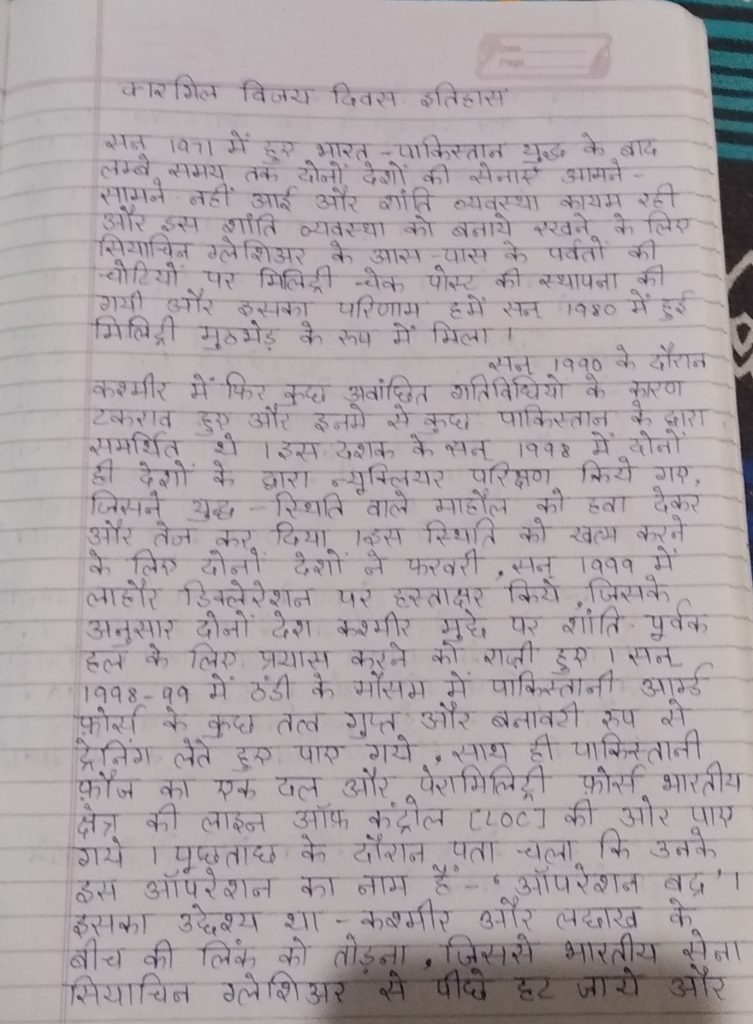 Date
Page
कारगिल विजय दिवस इतिहास
सन 1971 में हुए भारत-पाकिस्तान युद्ध के बाद
लम्बे समय तक दोनों देशों की सेनाएँ आमने-
सामने नहीं आई और शांति व्यवस्था कायम रही
और इस शांति व्यवस्था को बनाये रखने के लिए
सियाचिन ग्लेशिअर के आस-पास के पर्वतों की
चोटियों पर मिलिट्री चेक पोस्ट की स्थापना की
गयी और इसका परिणाम हमें सन् 1980 में हुई
मिलिट्री मुठभेड़ के रूप में मिला।
सन् 1990 के दौरान
कश्मीर में फिर कुछ अवांछित गतिविधियो के कारण
टकराव हुए और इनमे से कुछ पाकिस्तान के द्वारा
समर्थित थे। इस दशक के सन् 1998 में दोनों
ही देशों के द्वारा न्यूक्लियर परिक्षण किये गए,
जिसने युद्ध-स्थिति वाले माहौल को हवा देकर
और तेज कर दिया। इस स्थिति को खत्म करने
के लिए दोनों देशों ने फरवरी, सन् 1999 में
लाहौर डिक्लेरेशन पर हस्ताक्षर किये, जिसके
अनुसार दोनों देश कश्मीर मुद्दे पर शांति पूर्वक
हल के लिए प्रयास करने को राज़ी हुए। सन्
1998-99 में ठंडी के मौसम में पाकिस्तानी आर्म्ड
फ़ोर्स के कुछ तत्व गुप्त और बनावटी रूप से
ट्रेनिंग लेते हुए पाए गये, साथ ही पाकिस्तानी
फ़ौज का एक दल और पेरामिलिट्री फ़ोर्स भारतीय
क्षेत्र की लाइन ऑफ़ कंट्रोल [LOC] की ओर पाए
गये। पूछताछ के दौरान पता चला कि उनके
इस ऑपरेशन का नाम हैं- 'ऑपरेशन बद्र'।
इसका उद्देश्य था - कश्मीर और लद्दाख के
बीच की लिंक को तोड़ना, जिससे भारतीय सेना
सियाचिन ग्लेशिअर से पीछे हट जाये और